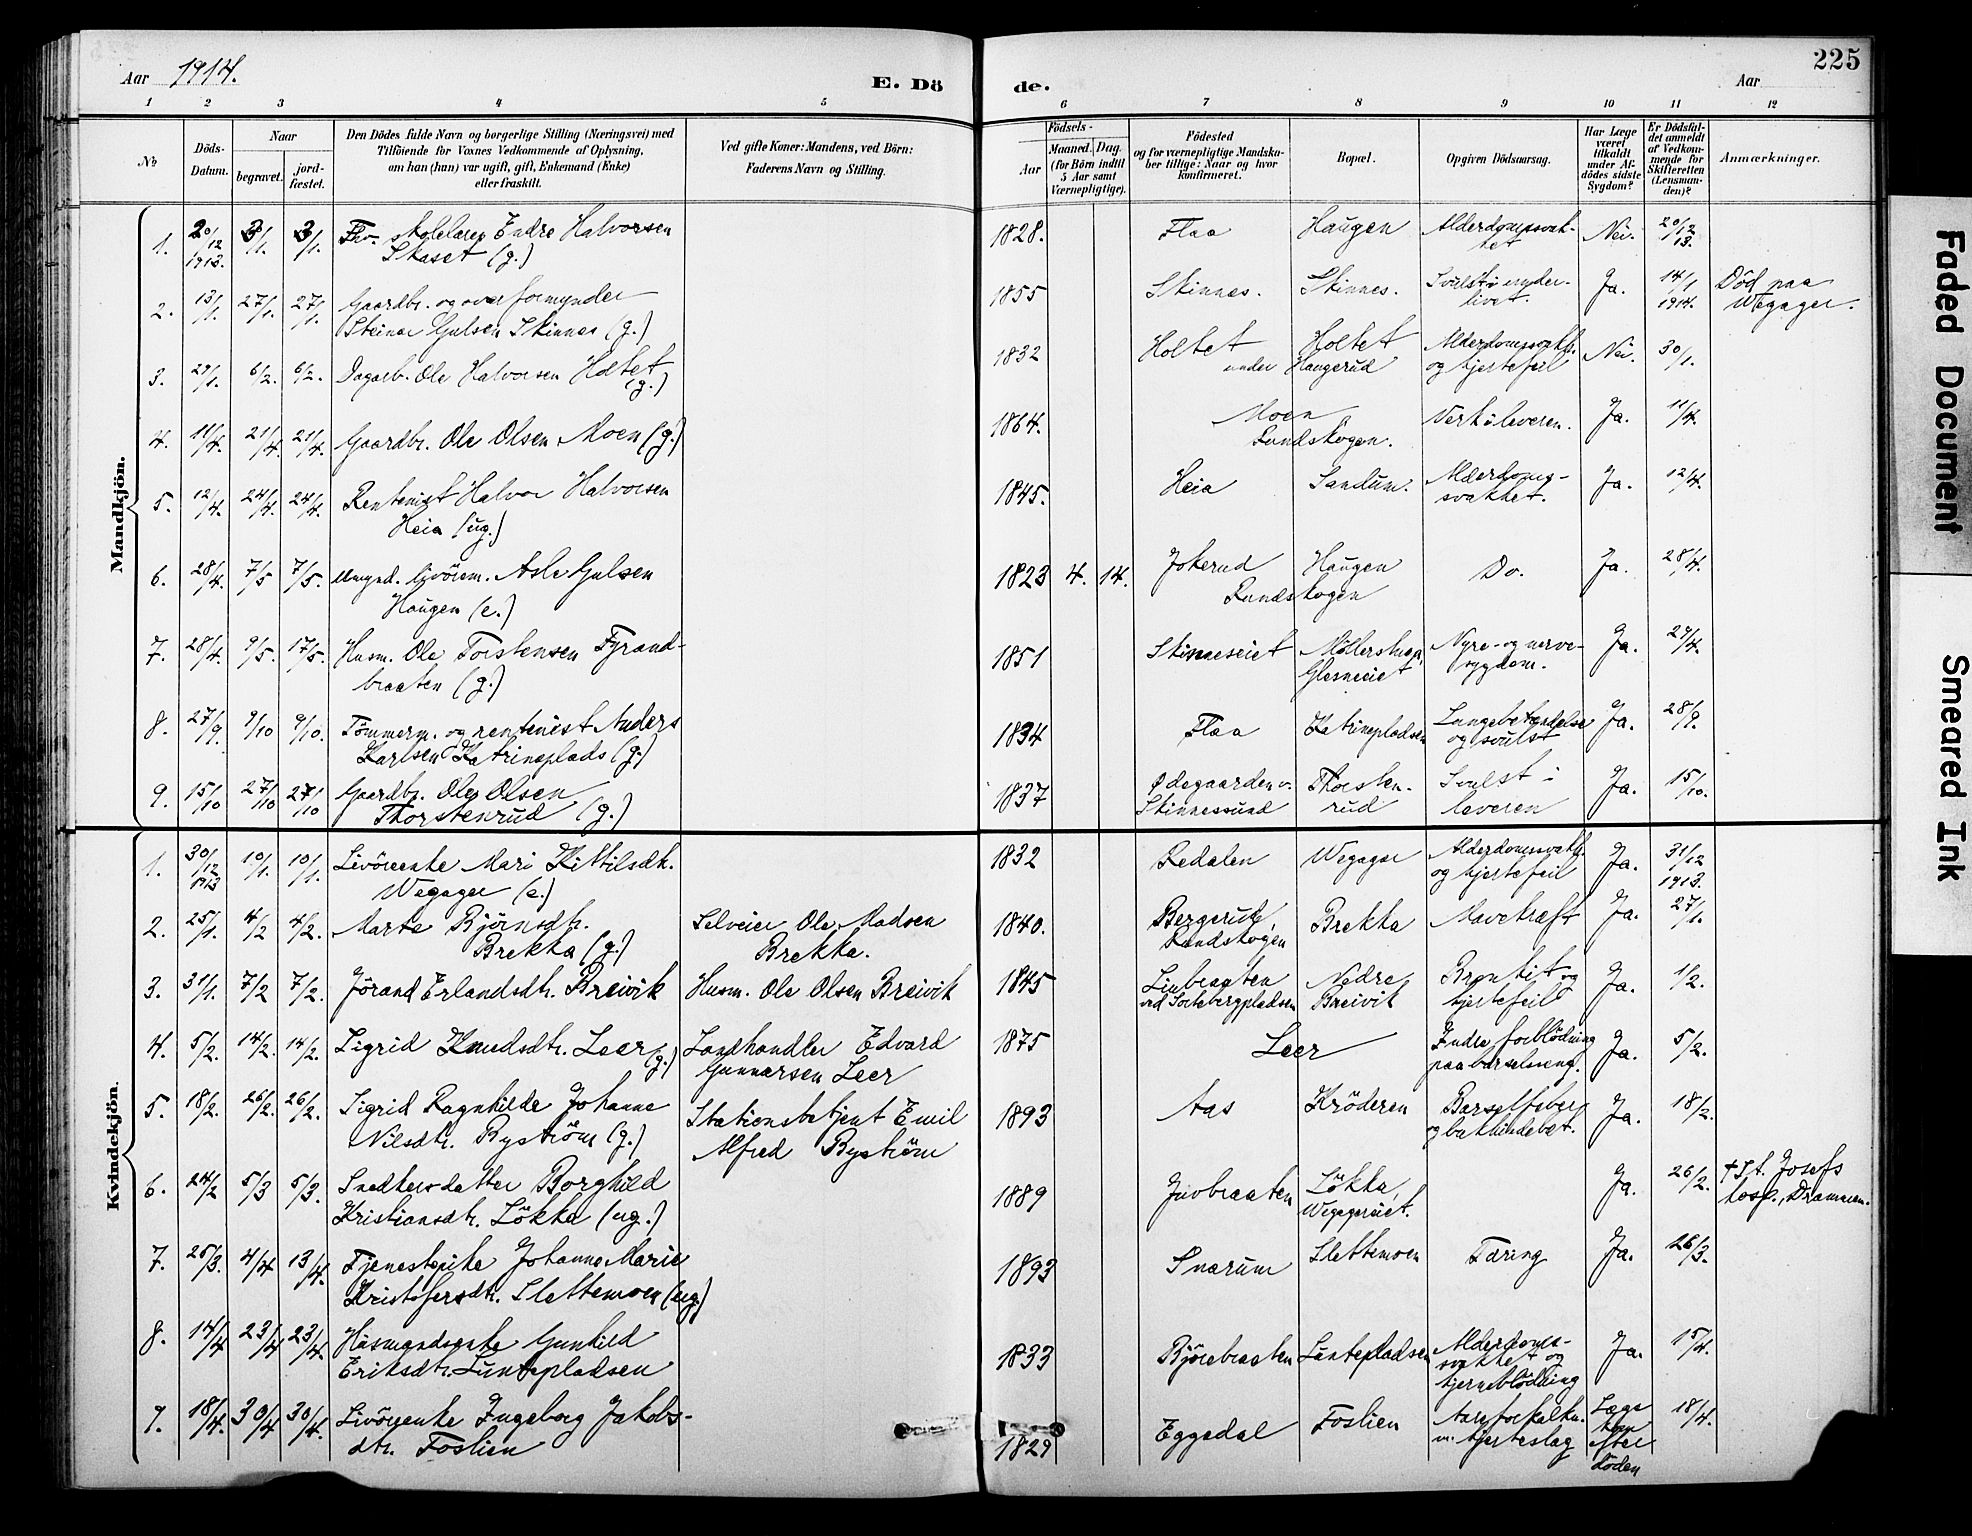 225
Aar 1914.
E. Döde.
Aar
1 2 3 4 5 6 7 8 9 10 11 12
No
Döds-Datum.
Naar
begravet.
jord-fæstet.
Den Dödes fulde Navn og borgerlige Stilling (Næringsvei) med
Tilföiende for Voxnes Vedkommende af Oplysning,
om han (hun) var ugift, gift, Enkemand (Enke)
eller fraskilt.
Ved gifte Koner: Mandens, ved Börn:
Faderens Navn og Stilling.
Födsels-
Aar
Maaned. Dag.
(for Börn indtil
5 Aar samt
Værnepligtige).
Födested
og for værnepligtige Mandska-
ber tillige: Naar og hvor
konfirmeret.
Bopæl.
Opgiven Dödsaarsag.
Har Læge
været
tilkaldt
under Af-
dödes sidste
Sygdom?
Er Dödsfal-
det anmeldt
af Vedkom-
mende for
Skifteretten
(Lensman-
den)?
Anmærkninger.
Mandkjön.
1. 20/12 1913. 3/1. 3/1. Fhv. skolelærer Endre Halvorsen
Skaset (g.)
1828. Flaa Haugen Alderdomssvak-
het Nei. 20/12 13.
2. 13/1. 27/1. 27/1. Gaardbr. og overformynder
Steinar Gulsen Skinnes (g.)
1855 Skinnes. Skinnes. Svulst i under-
livet. Ja. 14/1 1914. Död paa
Wegager.
3. 29/1. 6/2. 6/2. Dagarb. Ole Halvorsen Holtet
(g.)
1832 Holtet Holtet Alderdomssvakh.
under Haugerud og hjertefeil Nei. 30/1.
4. 11/4. 21/4. 21/4. Gaardbr. Ole Olsen Moen (g.)
1864. Moen
Lundskogen. Verk i leveren. Ja. 11/4.
5. 12/4. 24/4. 24/4. Rentenist Halvor Halvorsen
Heia (ug.)
1845. Heia Sandum. Alderdoms-
svakhet. Ja. 12/4.
6. 28/4. 7/5 7/5. Asle Gulsen
Haugen (e.)
1823 4. 14. Jokerud Haugen Do. Ja. 28/4.
7. 28/4. 9/5. 17/5. Husm. Ole Torstensen Fyrand-
braaten (g.)
1851 Skinneseiet Nyre- og nerve-
Glesneeiet sygdom. Ja. 29/4.
8. 27/9. 9/10 9/10. Tömmerm. og rentenist Anders
Karlsen Katrineplads (g.)
1834 Flaa Katrinepladsen Lungebetændelse
og svulst Ja. 28/9.
9. 15/10 27/10 27/10 Gaardbr. Ole Olsen
Thorstenrud (g.)
1837 Ødegaarden v. Thorsten- Svulst i
Skinnessund rud leveren Ja. 15/10.
Kvindekjön.
1. 30/12 1913 10/1. 10/1. Livöreenke Mari Kittilsdt.
Wegager (e.)
1832 Redalen Wegager Alderdomssvakh.
og hjertefeil Ja. 31/12 1913.
2. 25/1. 4/2 4/2. Marte Björnsdtr.
Brekka (g.)
Selveier Ole Madsen
Brekka.
1840. Bergerud, Brekka Mavekræft Ja. 27/1.
3. 31/1. 7/2 7/2. Jörand Erlandsdtr. Breivik Husm. Ole Olsen Breivik
1845 Linbraaten Nedre Bronkit og
ved Sortebergpladsen Breivik hjertefeil Ja. 1/2.
4. 5/2. 14/2. 14/2. Sigrid Knudsdtr. Leer (g.) Landhandler Edvard
Gunnarsen Leer
1875 Leer Indre forblödning
paa barselseng. Ja. 5/2.
5. 18/2. 26/2. 26/2. Sigrid Ragnhilde Johanne
Nilsdtr. Byström (g.)
Stationsbetjent Emil
Alfred Byström
1893 Aas Kröderen Barselfeber
og bukhindebet. Ja. 18/2.
6. 24/2 5/3 5/3. Snedkersdatter Borghild
Kristiansdtr. Lökka (ug.)
1889 Juvbraaten Lökka,
Wegagereiet. Ja. 26/2. † St. Josefs
hosp., Drammen.
7. 25/3. 4/4 13/4. Tjenestepike Johanne Marie
Kristofersdtr. Slettemoen (ug.)
1893 Snarum Slettemoen Tæring Ja. 26/3.
8. 14/4 23/4 23/4. Husmandsenke Gunhild
Eriksdtr. Luntepladsen
1833 Björebraaten Luntepladsen Alderdoms-
svakhet og
hjerneblödning Ja. 15/4.
9. 18/4. 30/4 30/4. Livöreenke Ingeborg Jakobs-
dtr. Foslien
1829 Eggedal Foslien Aareforkalkn.
m. hjerteslag Læge
kom
efter
döden 18/4.
Faded Document
Smeared Ink